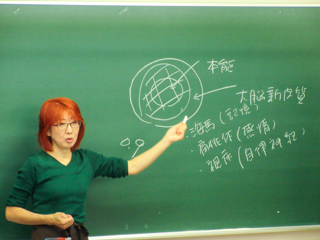 本能
大脳新皮質
海馬(記憶)
・扁桃体(感情)
・視床(自律神経)